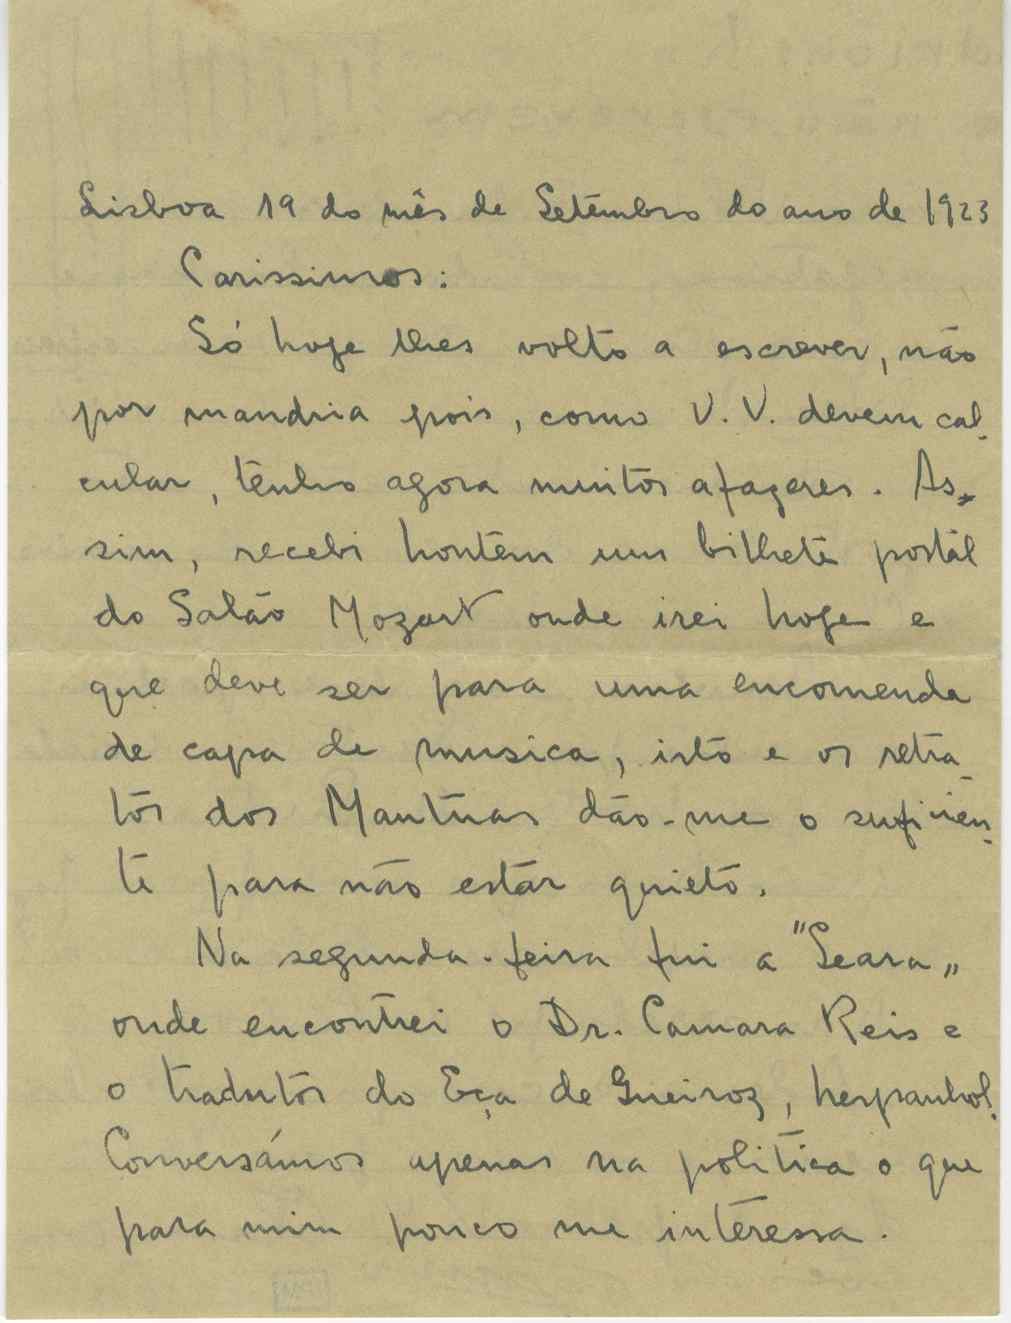 Lisboa 19 do mês de Setembro do ano de 1923
Carissimos:
Só hoje lhes volto a escrever, não
por mandria pois, como V. V. devem cal-
cular, tenho agora muitos afazeres. As-
sim, recebi hontem um bilhete postal
do Salão Mozart onde irei hoje e
que deve ser para uma encomenda
de capa de musica, isto e os retra-
tos dos Mantuas dão-me o suficien-
te para não estar quieto.
Na segunda-feira fui a "Seara"
onde encontrei o Dr. Camara Reis e
o tradutor do Eça de Queiroz, hespanhol.
Conversámos apenas na politica o que
para mim pouco me interessa.